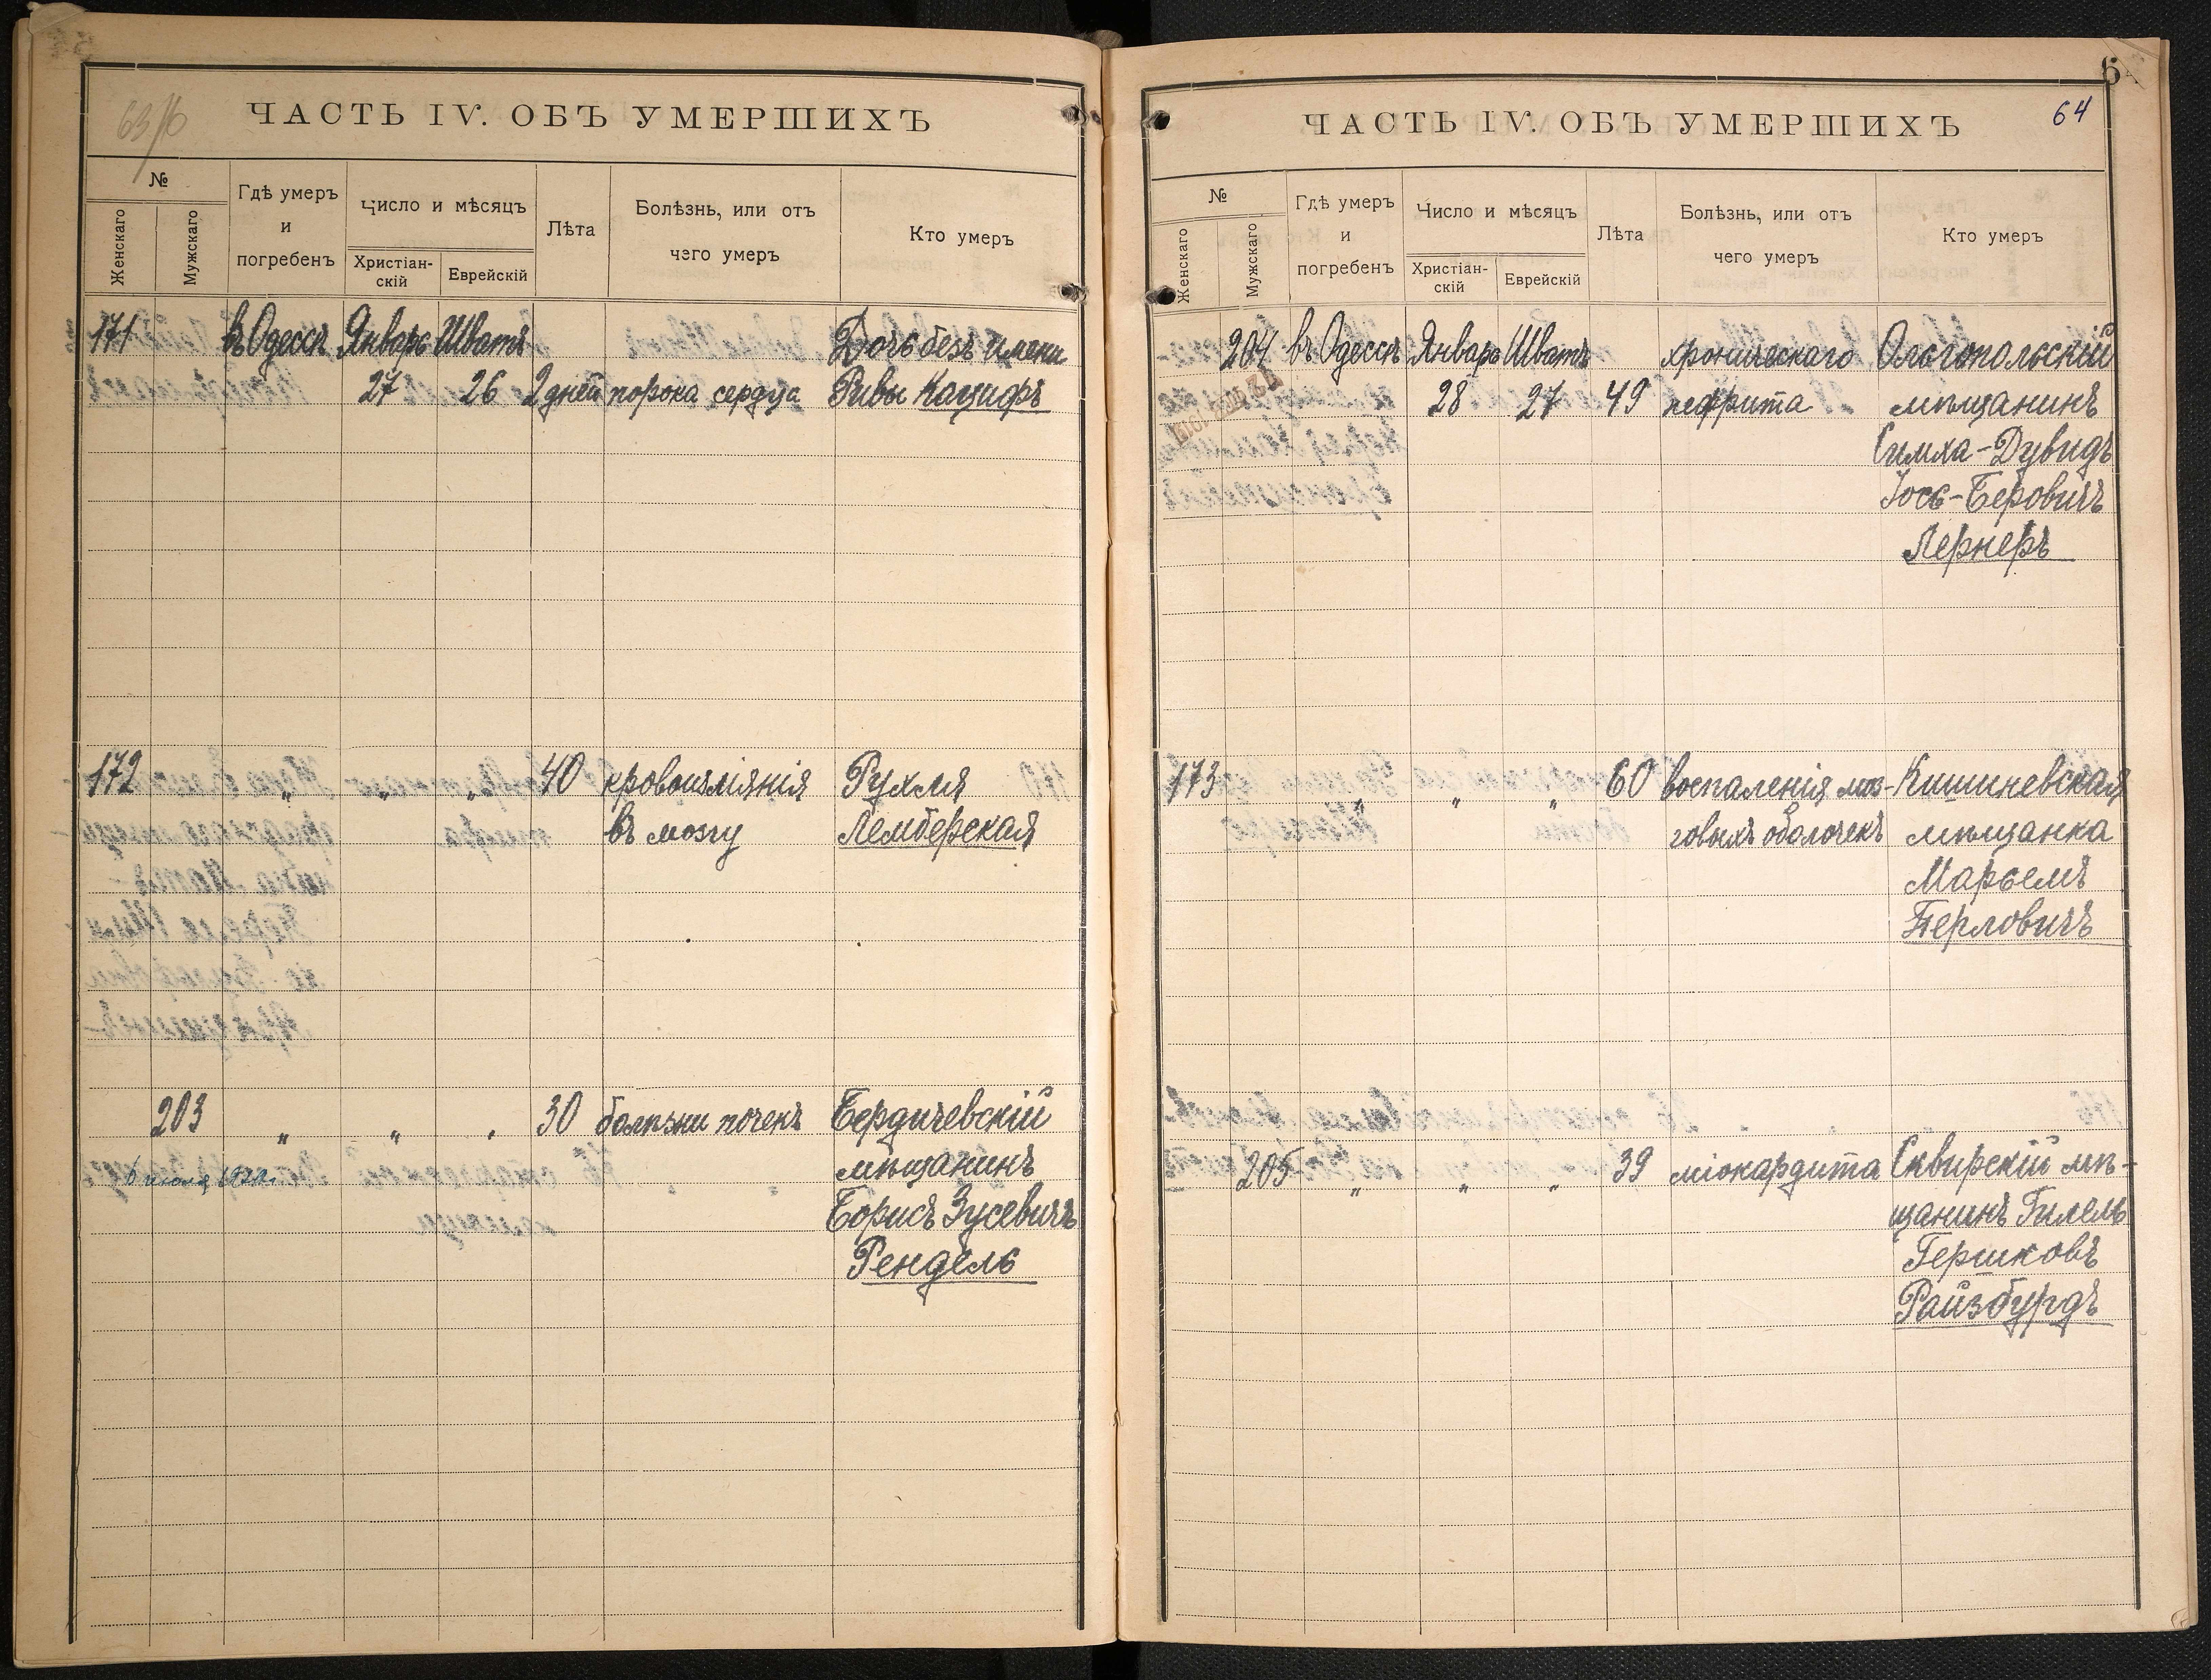 ЧАСТЬ IV. ОБЪ УМЕРШИХЪ
№
Женскаго
Мужскаго
Гдѣ умеръ
и
погребенъ
Число и мѣсяцъ
Христіан-
скій
Еврейскій
Лѣта
Болѣзнь, или отъ
чего умеръ
Кто умеръ
171 въ Одессѣ Январь Шватъ Дочь безъ имени
27 26 2 дней порока сердца Ривы Кацифъ
172 " " " 40 кровоизліянія Рухля
въ мозгу Лемберская
203 " " " 30 болѣзни почекъ Бердичевскій
мѣщанинъ
6 июля 1920г.
Борисъ Зусевичъ
Рендель
ЧАСТЬ IV. ОБЪ УМЕРШИХЪ
64
№
Женскаго
Мужскаго
Гдѣ умеръ
и
погребенъ
Число и мѣсяцъ
Христіан-
скій
Еврейскій
Лѣта
Болѣзнь, или отъ
чего умеръ
Кто умеръ
204 въ Одессѣ Январь Шватъ хроническаго Ольгопольскій
28 27 49 нефрита мѣщанинъ
Симха-Дувидъ
Іось-Беровичъ
Лернеръ
173 " " " 60 воспаленія моз- Кишиневская
говыхъ оболочекъ мѣщанка
Марьемъ
Перловичъ
205 " " " 39 міокардита Сквирскій мѣ-
щанинъ Гилель
Гершковъ
Райзбурдъ